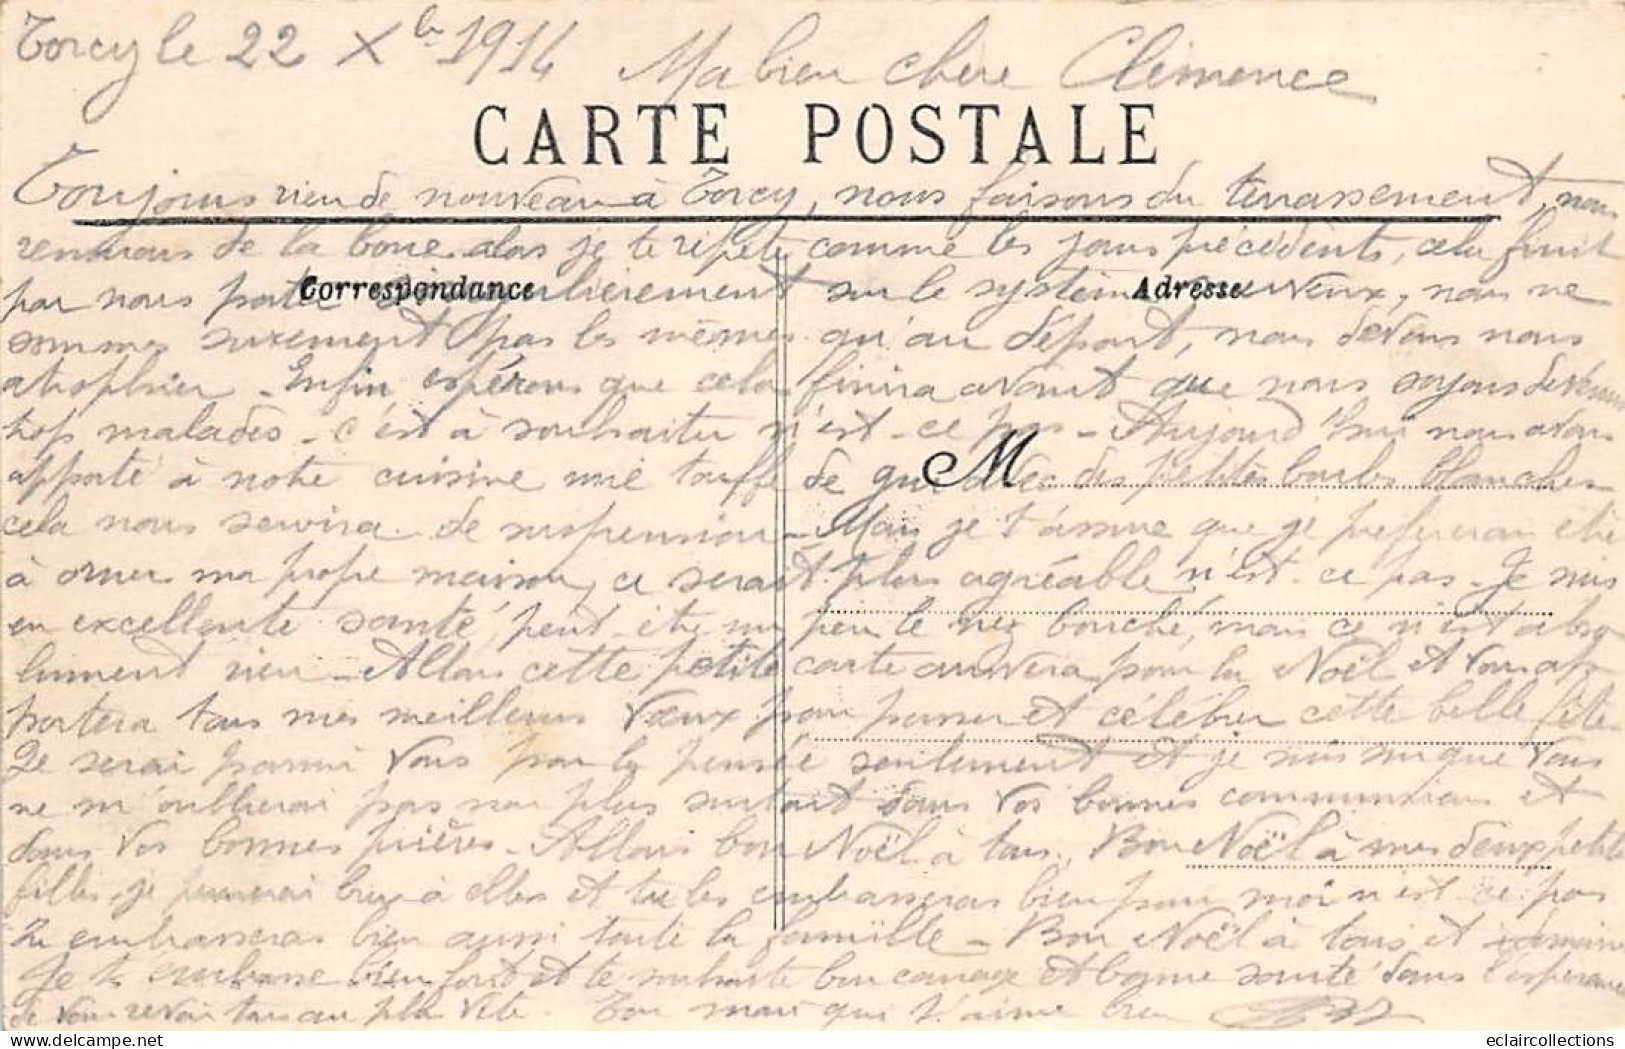 Torcy le 22 Xbre 1914 Ma bien chère Clémence
CARTE POSTALE
Toujours rien de nouveau à Torcy, nous faisons du terrassement, nous
remuons de la boue alors je te répète comme les jours précédents, cela finit
par nous porter singulièrement sur le système nerveux, nous ne
Correspondance
Adresse
sommes surement pas les mêmes qu'au départ, nous devons nous
atrophier - Enfin espérons que cela finira avant que nous soyons devenus
trop malades - c'est à souhaiter n'est-ce pas - Aujourd'hui nous avons
apporté à notre cuisine une touffe de gui avec des petites boules blanches
M
cela nous servira de suspension - Mais je t'assure que je préférerais être
à orner ma propre maison, ce serait plus agréable n'est-ce pas - Je suis
en excellente santé, peut-être un peu le nez bouché, mais ce n'est abso-
lument rien - Allons cette petite carte arrivera pour la Noël et vous ap-
portera tous mes meilleurs vœux pour passer et célébrer cette belle fête
Je serai parmi vous par la pensée seulement et je suis sur que vous
ne m'oublierai pas non plus surtout dans vos bonnes communions et
dans vos bonnes prières - Allons bon Noël à tous, Bon Noël à mes deux petites
filles, je penserai bien à elles et tu les embrasseras bien pour moi n'est-ce pas
Tu embrasseras bien aussi toute la famille - Bon Noël à tous et à demain
Je t'embrasse bien fort et te souhaite bon courage et bonne santé dans l'espérance
de vous revoir tous au plus vite. Ton mari qui t'aime bien
eclaircollections